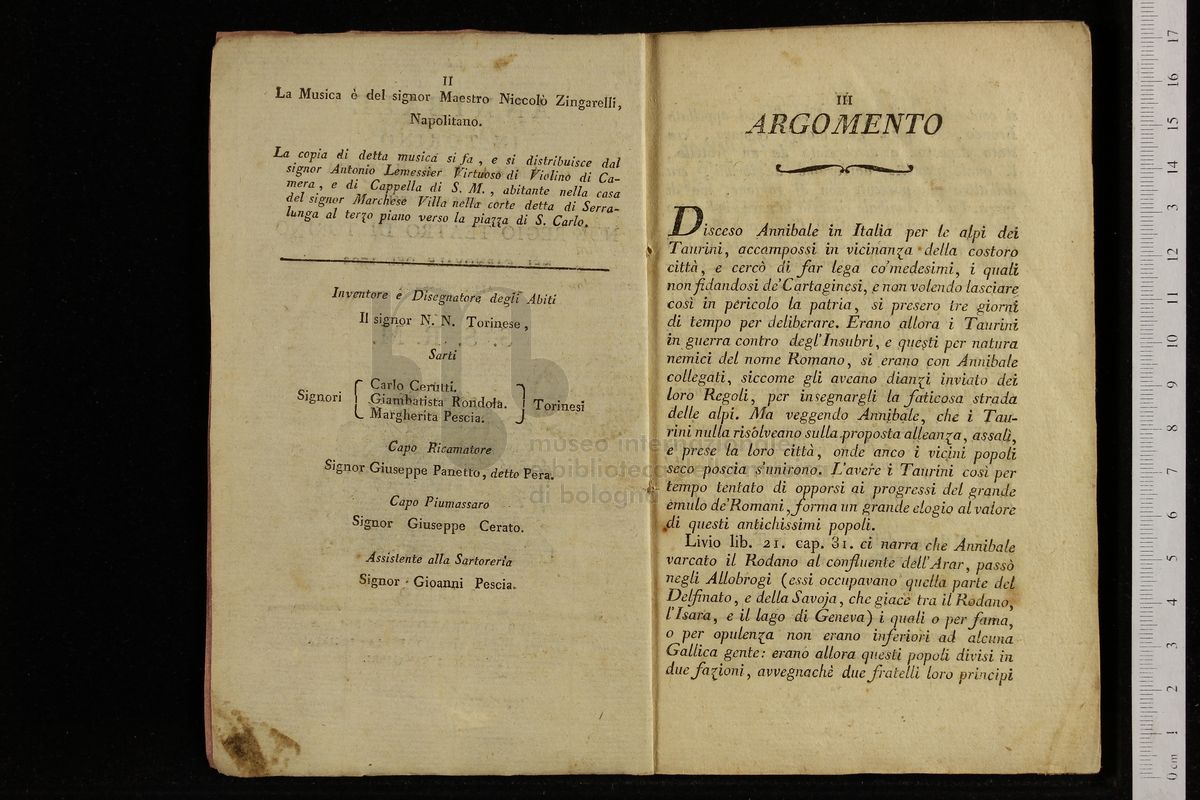 II
La Musica è del signor Maestro Niccolò Zingarelli,
Napolitano.
La copia di detta musica si fa, e si distribuisce dal
signor Antonio Lemessier Virtuoso di Violino di Ca-
mera, e di Cappella di S. M., abitante nella casa
del signor Marchese Villa nella corte detta di Serra-
lunga al terzo piano verso la piazza di S. Carlo.
Inventore e Disegnatore degli Abiti
Il signor N. N. Torinese,
Sarti
Signori { Carlo Cerutti.
Giambatista Rondola. } Torinesi
Margherita Pescia.
Capo Ricamatore
Signor Giuseppe Panetto, detto Pera.
Capo Piumassaro
Signor Giuseppe Cerato.
Assistente alla Sartoreria
Signor Gioanni Pescia.
III
ARGOMENTO
Disceso Annibale in Italia per le alpi dei
Taurini, accampossi in vicinanza della costoro
città, e cercò di far lega co'medesimi, i quali
non fidandosi de'Cartaginesi, e non volendo lasciare
così in pericolo la patria, si presero tre giorni
di tempo per deliberare. Erano allora i Taurini
in guerra contro degl'Insubri, e questi per natura
nemici del nome Romano, si erano con Annibale
collegati, siccome gli aveano dianzi inviato dei
loro Regoli, per insegnargli la faticosa strada
delle alpi. Ma veggendo Annibale, che i Tau-
rini nulla risolveano sulla proposta alleanza, assalì,
e prese la loro città, onde anco i vicini popoli
seco poscia s'unirono. L'avere i Taurini così per
tempo tentato di opporsi ai progressi del grande
emulo de'Romani, forma un grande elogio al valore
di questi antichissimi popoli.
Livio lib. 21. cap. 31. ci narra che Annibale
varcato il Rodano al confluente dell'Arar, passò
negli Allobrogi (essi occupavano quella parte del
Delfinato, e della Savoja, che giace tra il Rodano,
l'Isara, e il lago di Geneva) i quali o per fama,
o per opulenza non erano inferiori ad alcuna
Gallica gente: erano allora questi popoli divisi in
due fazioni, avvegnachè due fratelli loro principi
museo internazionale
e biblioteca della musica
di bologna
0 cm 1 2 3 4 5 6 7 8 9 10 11 12 13 14 15 16 17